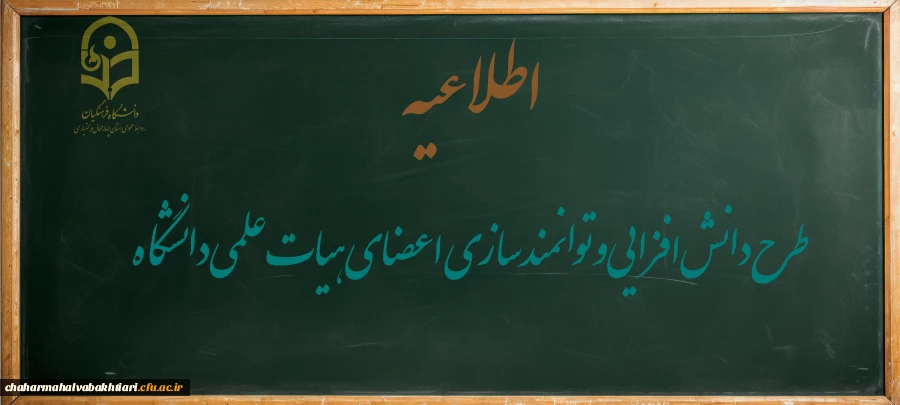 اطلاعیه
دانشگاه فرهنگیان
روابط عمومی استان چهارمحال و بختیاری
طرح دانش افزایی و توانمندسازی اعضای هیات علمی دانشگاه
chaharmahalvabakhtiari.cfu.ac.ir